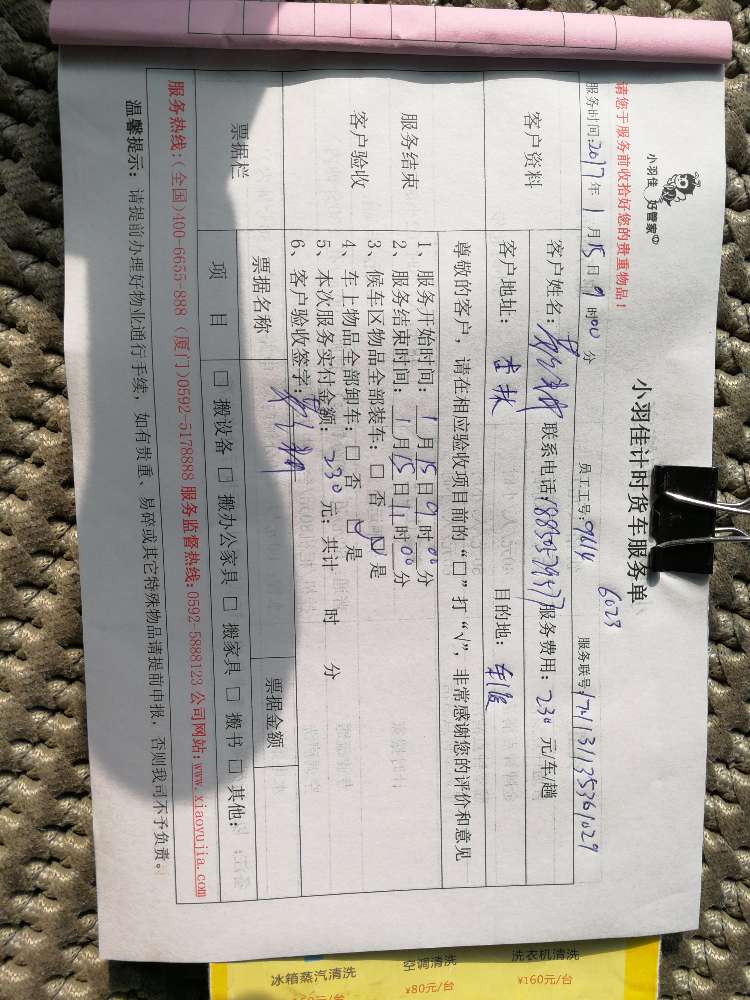 小羽佳 好管家
小羽佳计时货车服务单
请您于服务前收拾好您的贵重物品！
6023
服务时间:2017年1月15日9时00分 员工工号:9614 服务联号:
客户资料
客户姓名: 联系电话: 服务费用: 230 元/车/趟
客户地址: 目的地:
服务结束
客户验收
尊敬的客户，请在相应验收项目前的“□”打“√”，非常感谢您的评价和意见
1、服务开始时间: 1月15日9时00分
2、服务结束时间: 1月15日11时00分
3、候车区物品全部装车: □ 否 ☑ 是
4、车上物品全部卸车: □ 否 ☑ 是
5、本次服务实付金额: 230 元; 共计 时 分
6、客户验收签字:
票据栏
票据名称 票据金额
项 目 □ 搬设备 □ 搬办公家具 □ 搬家具 □ 搬书 □ 其他:
服务热线:(全国)400-6655-888 (厦门)0592-5178888 服务监督热线:0592-5888123 公司网站:www.xiaoyujia.com
温馨提示: 请提前办理好物业通行手续，如有贵重、易碎或其它特殊物品请提前申报，否则我司不予负责。
冰箱蒸汽清洗 空调清洗 洗衣机清洗
¥80元/台 ¥160元/台